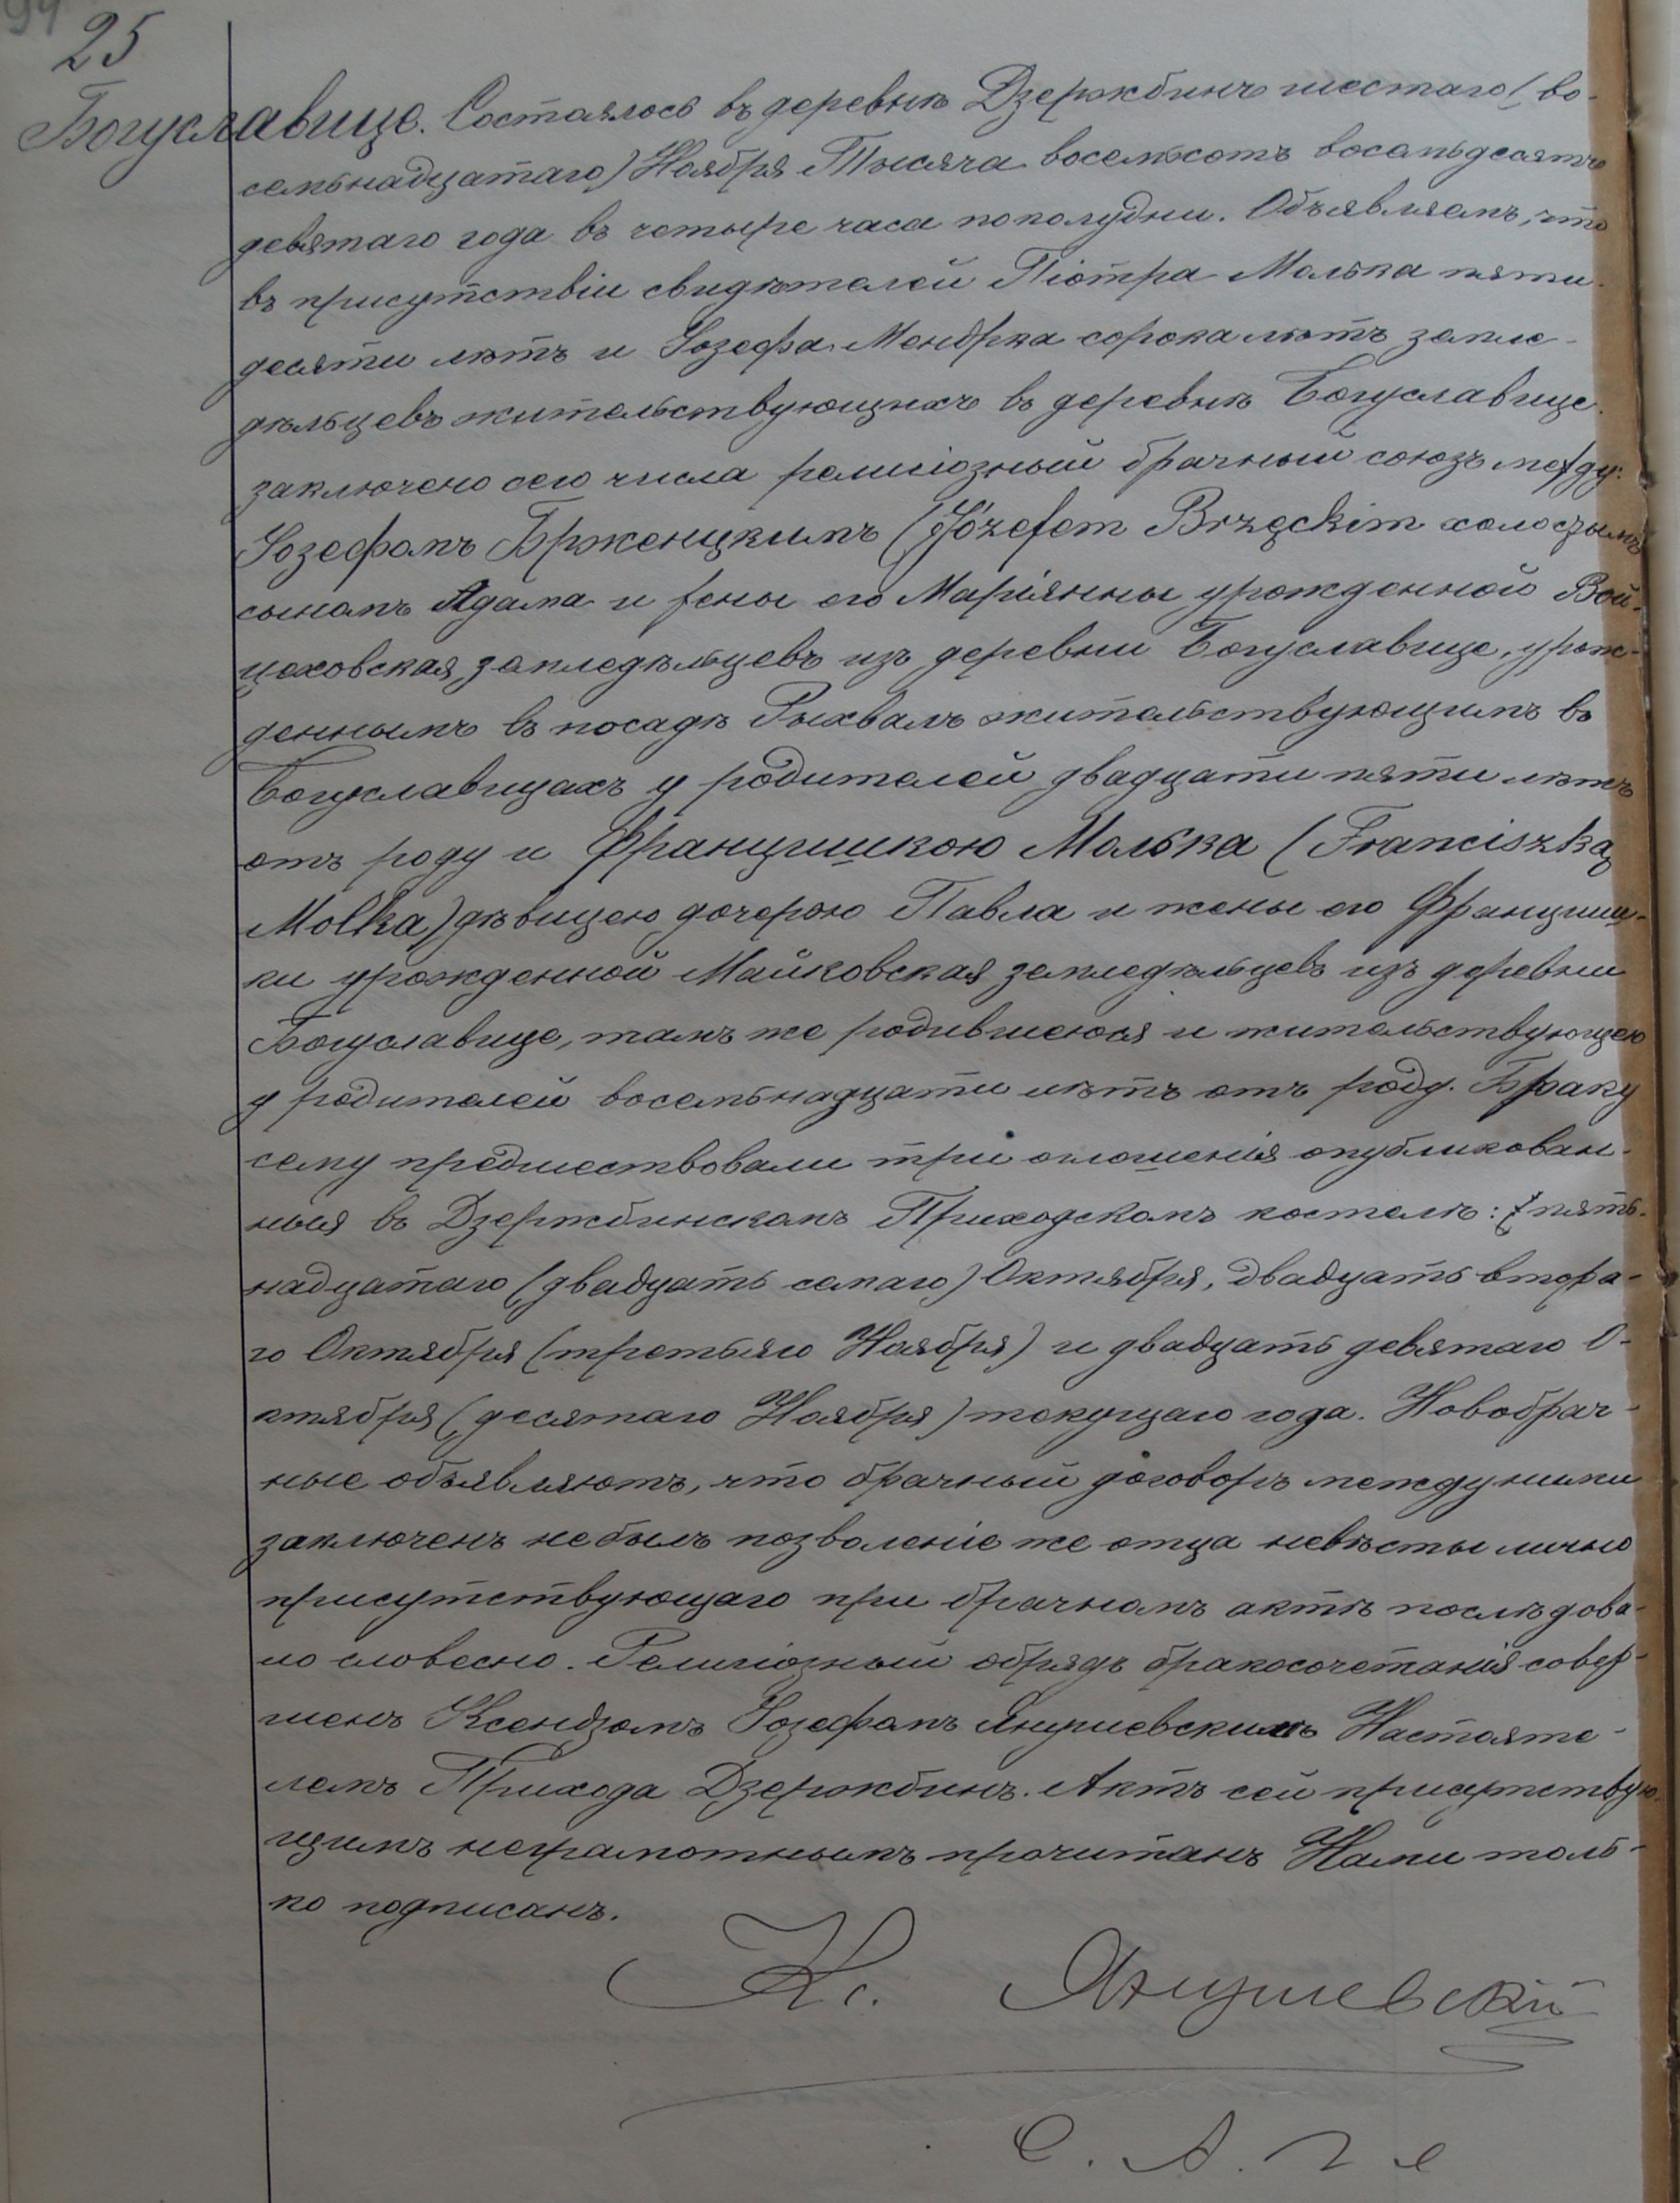 94
25
Богуславице. Состоялось въ деревнѣ Дзержбинъ шестаго (во-
семьнадцатаго) Ноября Тысяча восемьсотъ восемьдесятъ
девятаго года въ четыре часа пополудни. Объявляемъ, что
въ присутствіи свидѣтелей Піотра Молька пяти-
десяти лѣтъ и Іозефа Мендрка сорока лѣтъ земле-
дѣльцевъ жительствующихъ въ деревнѣ Богуславице
заключено сего числа религіозный брачный союзъ между:
Іозефомъ Брженцкимъ (Józefem Brzęckim холостымъ
сыномъ Адама и жены его Маріянны урожденной Вой-
цеховская, земледѣльцевъ изъ деревни Богуславице, урож-
деннымъ въ посадѣ Рыхвалъ жительствующимъ въ
Богуславицахъ у родителей двадцати пяти лѣтъ
отъ роду и Францишкою Молька (Franciszką
Molka) дѣвицею дочерою Павла и жены его Францищ-
ки урожденной Майковская земледѣльцевъ изъ деревни
Богуславице, тамъ же родившеюся и жительствующею
у родителей восемьнадцати лѣтъ отъ роду. Браку
сему предшествовали три оглошенія опубликован-
ныя въ Дзержбинскомъ Приходскомъ костелѣ: пять-
надцатаго (двадцать семаго) Октября, двадцать втора-
го Октября (третьяго Ноября) и двадцать девятаго О-
ктября (десятаго Ноября) текущаго года. Новобрач-
ные объявляютъ, что брачный договоръ между ними
заключенъ небылъ позволеніе же отца невѣсты лично
присутствующаго при брачномъ актѣ послѣдова-
ло словесно. Религіозный обрядъ бракосочетанія совер-
шенъ Ксендзомъ Іозефомъ Янушевскимъ Настояте-
лемъ Прихода Дзержбинъ. Актъ сей присутствую-
щимъ неграмотнымъ прочитанъ Нами толь-
ко подписанъ.
Кс. Янушевскій
С. А. Г. С